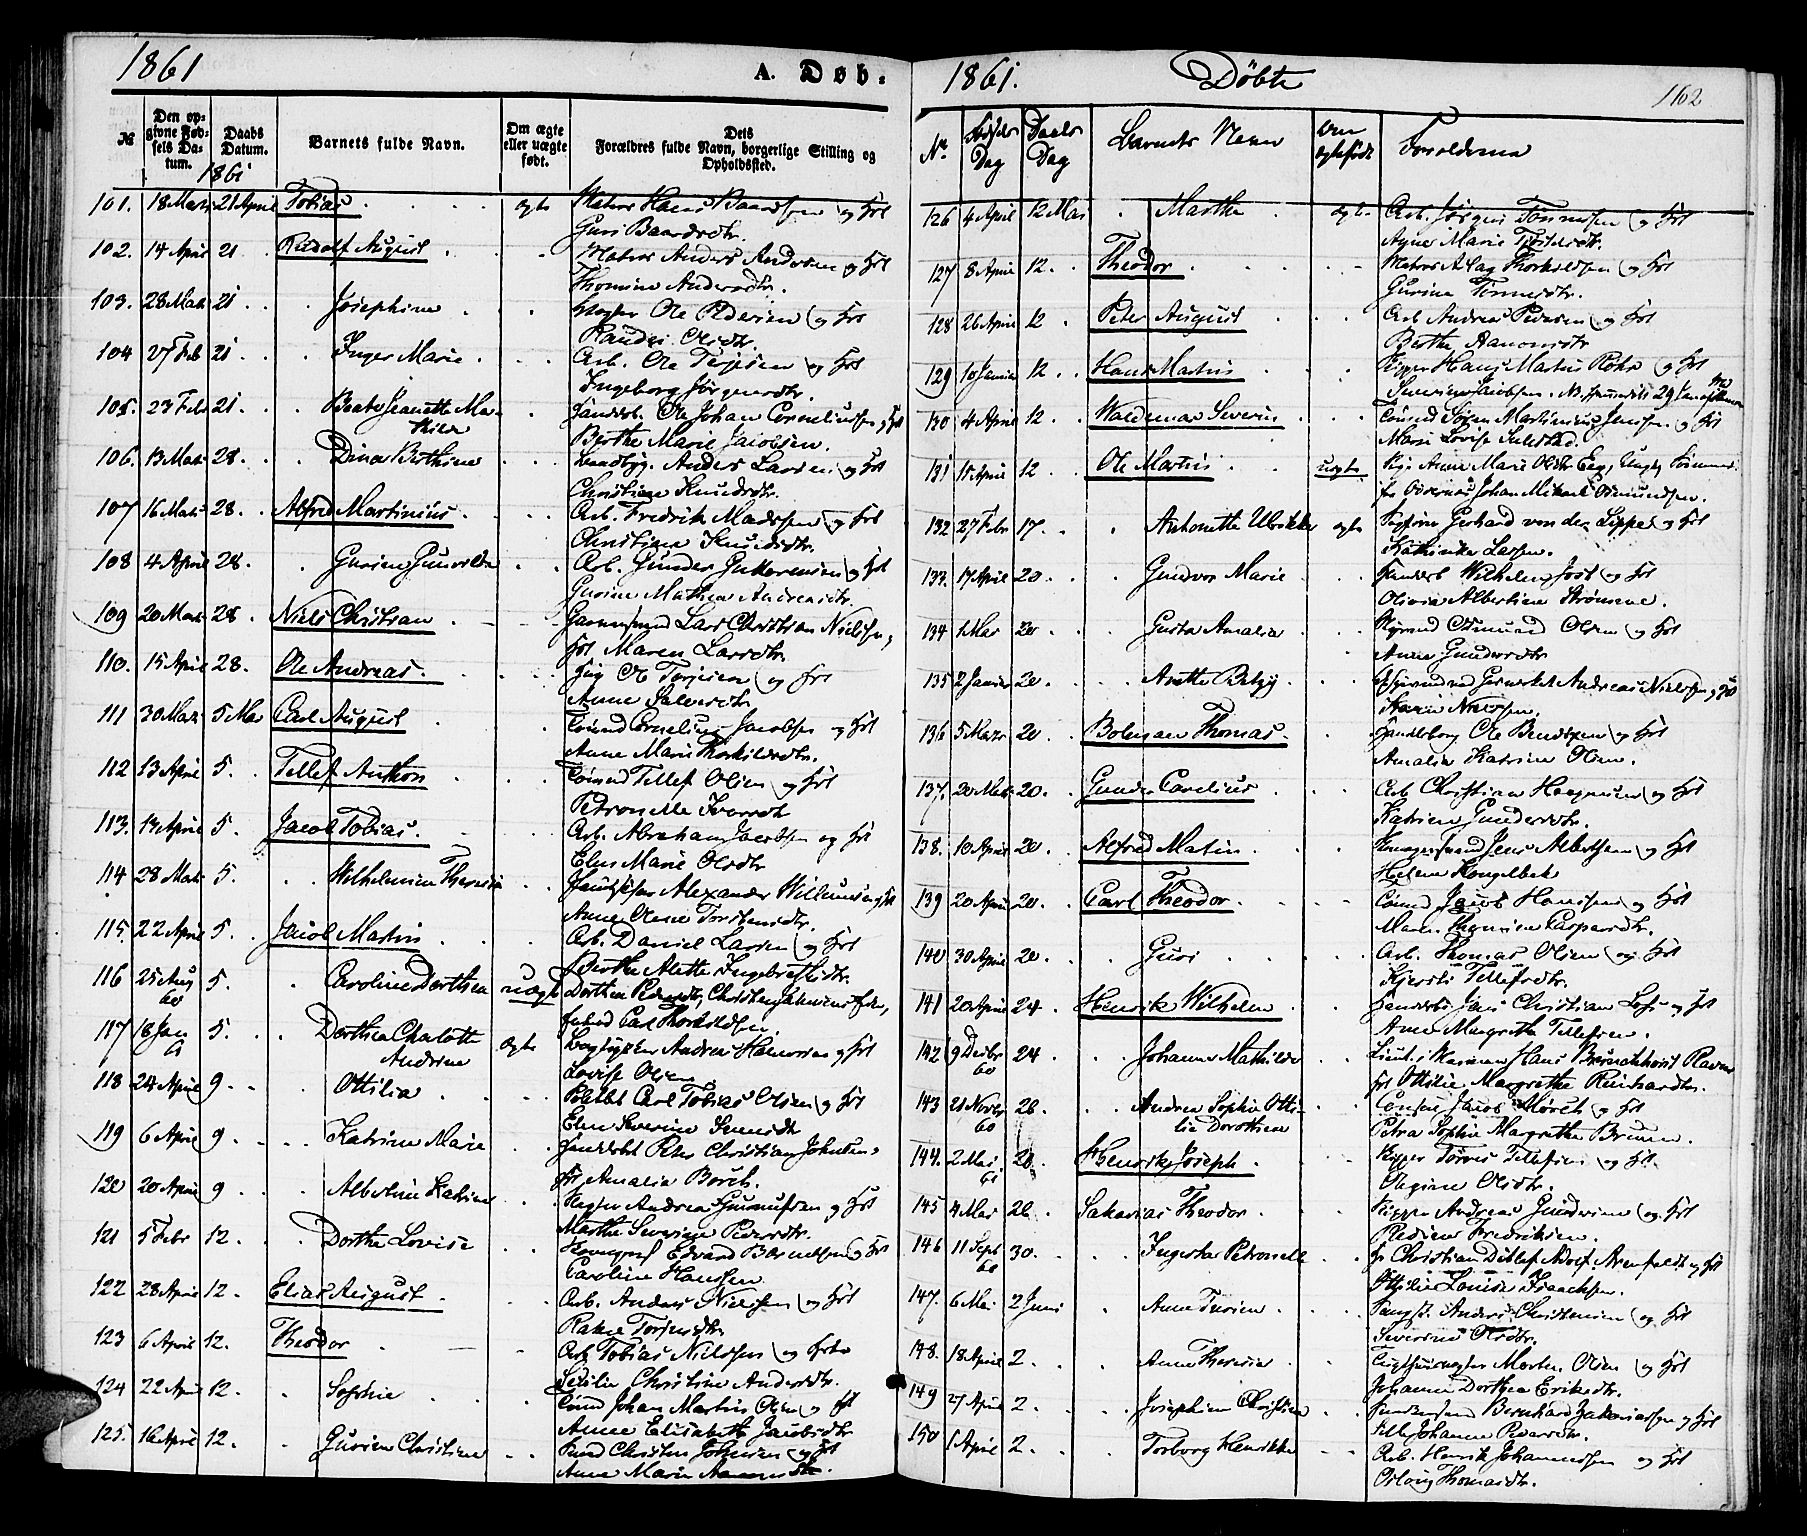 1861
A. Døb-
№
Den opgivne Fødsels Datum.
Daabs Datum.
Barnets fulde Navn.
Om ægte eller uægte født.
Dets Forældres fulde Navn, borgerlige Stilling og Opholdssted.
1861
101. 18 Marts 21 April Tobias ægte Matros Hans Baardsen og Hst
Guri Baardsdtr.
102. 14 April 21 Rudolf August Matros Anders Andersen og Hst
Thomine Andersdtr.
103. 28 Marts 21 Josephine Ole Pedersen og Hst
Randi Olsdtr.
104 27 Feb 21 Inger Marie Arb. Ole Terjesen og Hst
Ingeborg Jørgensdtr.
105. 23 Feb 21. Beate Jeanette Mathilde Handelsb. Ole Johan Corneliussen og Hst
Berthe Marie Jacobsen.
106. 13 Marts 28. Dina Bertine Anders Larsen og Hst
Christiane Knudsdtr.
107 16 Marts 28. Alfred Martinius Arb. Fredrik Madssen og Hst
Christiane Knudsdtr.
108 4 April 28. Gurine Gunvilde Arb. Gunder Guttormsen og Hst
Gurine Mathea Andreasdtr.
109 20 Marts 28 Niels Christian Lars Christian Nielsen,
Hst Maren Larsdtr.
110. 15 April 28. Ole Andreas Ole Terjesen og Hst
Anne Salvesdtr.
111 30 Marts 5 Mai Carl August Tømmd Cornelius Jacobsen og Hst
Anne Marie Thorkildsdtr.
112 13 April 5. Tellef Anthon Tømmd Tellef Olsen og Hst
Petronelle Iversdt
113. 14 April 5. Jacob Tobias Arb. Abraham Jacobsen og Hst
Elen Marie Olsdtr
114 28 Marts 5. Wilhelmine Theresia Alexander Willumsen og Hst
Anne Olene Torstensdtr.
115. 22 April 5. Jacob Martin Arb. Daniel Larsen og Hst
Berthe Alette Ingebrethsdtr.
116 25 Aug 60 5. Caroline Dorthea uægte Dorthea Pedersdtr,
Carl Thorkildsen.
117 18 Jan 61 5. Dorthea Charlotte Andrine ægte Andreas Hansen og Hst
Lovise Olsen
118 24 April 9 Ottilia Carl Tobias Olsen og Hst
Elen Severine
119 6 April 9 Katrine Marie Handelsb Peter Christian Johnsen,
Hst Amalia Borch.
120 20 April 9 Albertine Katrine Andreas Gunnufsen og Hst
Marthe Severine Pedersdtr.
121 5 Febr 12. Dorthe Lovise Edvard Berntsen og Hst
Caroline Hansen
122 28 April 12. Elias August Arb. Anders Nielsen og Hst
Torjersdtr.
123 6 April 12. Theodor Arb Tobias Nielssen og Hst
Sesilie Christine Andersdtr.
124 22 April 12. Sophie Tømd Johan Martin Olsen og Hst
Anne Elisabeth Jacobsdtr
125. 16 April 12. Gurine Christine Christen Johnsen og Hst
Anne Marie
1861.
Døbte
162
Nr. Fødsels Dag Daabs Dag Barnets Navn Om ægtefødt Forældrene
126 4 April 12 Mai Marthe ægte Arb. Jørgen Tønnesen og Hst
Anne Marie
127 8 April 12. Theodor Matros Aslag Thorkildsen og Hst
Gurine Tønnesdtr.
128 26 April 12 Peter August Arb Andreas Pedersen og Hst
Berthe Aanonsdtr
129 10 Januar 12 Hans Martin Skipper Hans Martin Røhr og Hst
Jacobsen. 29 Januar
130 4 April 12 Waldemar Severin Tømmd Søren Martinius Jenssen og Hst
Maren Lovise
131 15 April 12 Ole Martin uægte Pige Anne Marie Olsdtr Eeg, Ungk.
Johan Mikael Osmundsen.
132 27 Febr 17. Antonette Ulrikke ægte Gerhard von der Lippe og Hst
Kathinka Larsen.
133. 17 April 20 Gundvor Marie Handelsb Wilhelm Jost og Hst
Olivia Albertine Strømene.
134 1 Mai 20 Gusta Amalia Osmund Olsen og Hst
Anne Gundersdtr
135 2 Januar 20. Anette Betzy Andreas Nielsen og Hst
Karen Nielsen.
136 5 Marts 20 Boletman Thomas Handelsborg Ole Bendtsen og Hst
Amalia Katrine Olsen.
137. 20 Marts 20. Gunder Carelius Arb Christian Haagensen og Hst
Katrine Gundersdtr.
138. 10 April 20. Alfred Martin Jens Albertsen og Hst
Helene Kongelbek
139 20 April 20. Carl Theodor Tømd Jacob Hanssen og Hst
Maren Thomine Caspersdtr.
140 30 April 20. Guri Arb. Thomas Olsen og Hst
Kjersti Tellefsdtr.
141 20 April 24 Henrik Wilhelm Handelsb. Jens Christian og Hst
Anne Margrethe Tellefsen.
142 9 Decbr 60 24. Johanne Mathilde Lieut. i Marinen Hans Ravn
Hst Ottilie Margrethe Reinhardtsn.
143 21 Novbr 60 26. Andrea Sophie Ottilie Dorothea Consul Jacob Mørch og Hst
Petra Sophie Margrethe Bruun.
144. 2 Mai 61 20. Henrik Joseph Skipper Torvis Tellefsen og Hst.
Olegine Olsdtr.
145 4 Mai 26. Sakarias Theodor Skipper Andreas Gundersen og Hst
Fredriksen.
146 11 Sept 60 30. Ingertha Petronelle Hr Christian Ditlef Adolf Arenfeldt og Hst
Ottilie Lovise Isaachsen.
147. 6 Mai 2 Juni Anne Turine Anders Christensen og Hst
Severine Olsdtr.
148. 18 April 2. Anne Theresia Morten Olsen og Hst
Johanne Dorthea Eriksdtr.
149 27 April 2. Josephine Christine Bernhard Zakariassen og Hst
Johanne Pedersdtr.
150 1 April 2. Torborg Henrikke Arb. Henrik Johannessen og Hst
Oslaug Thomasdtr.